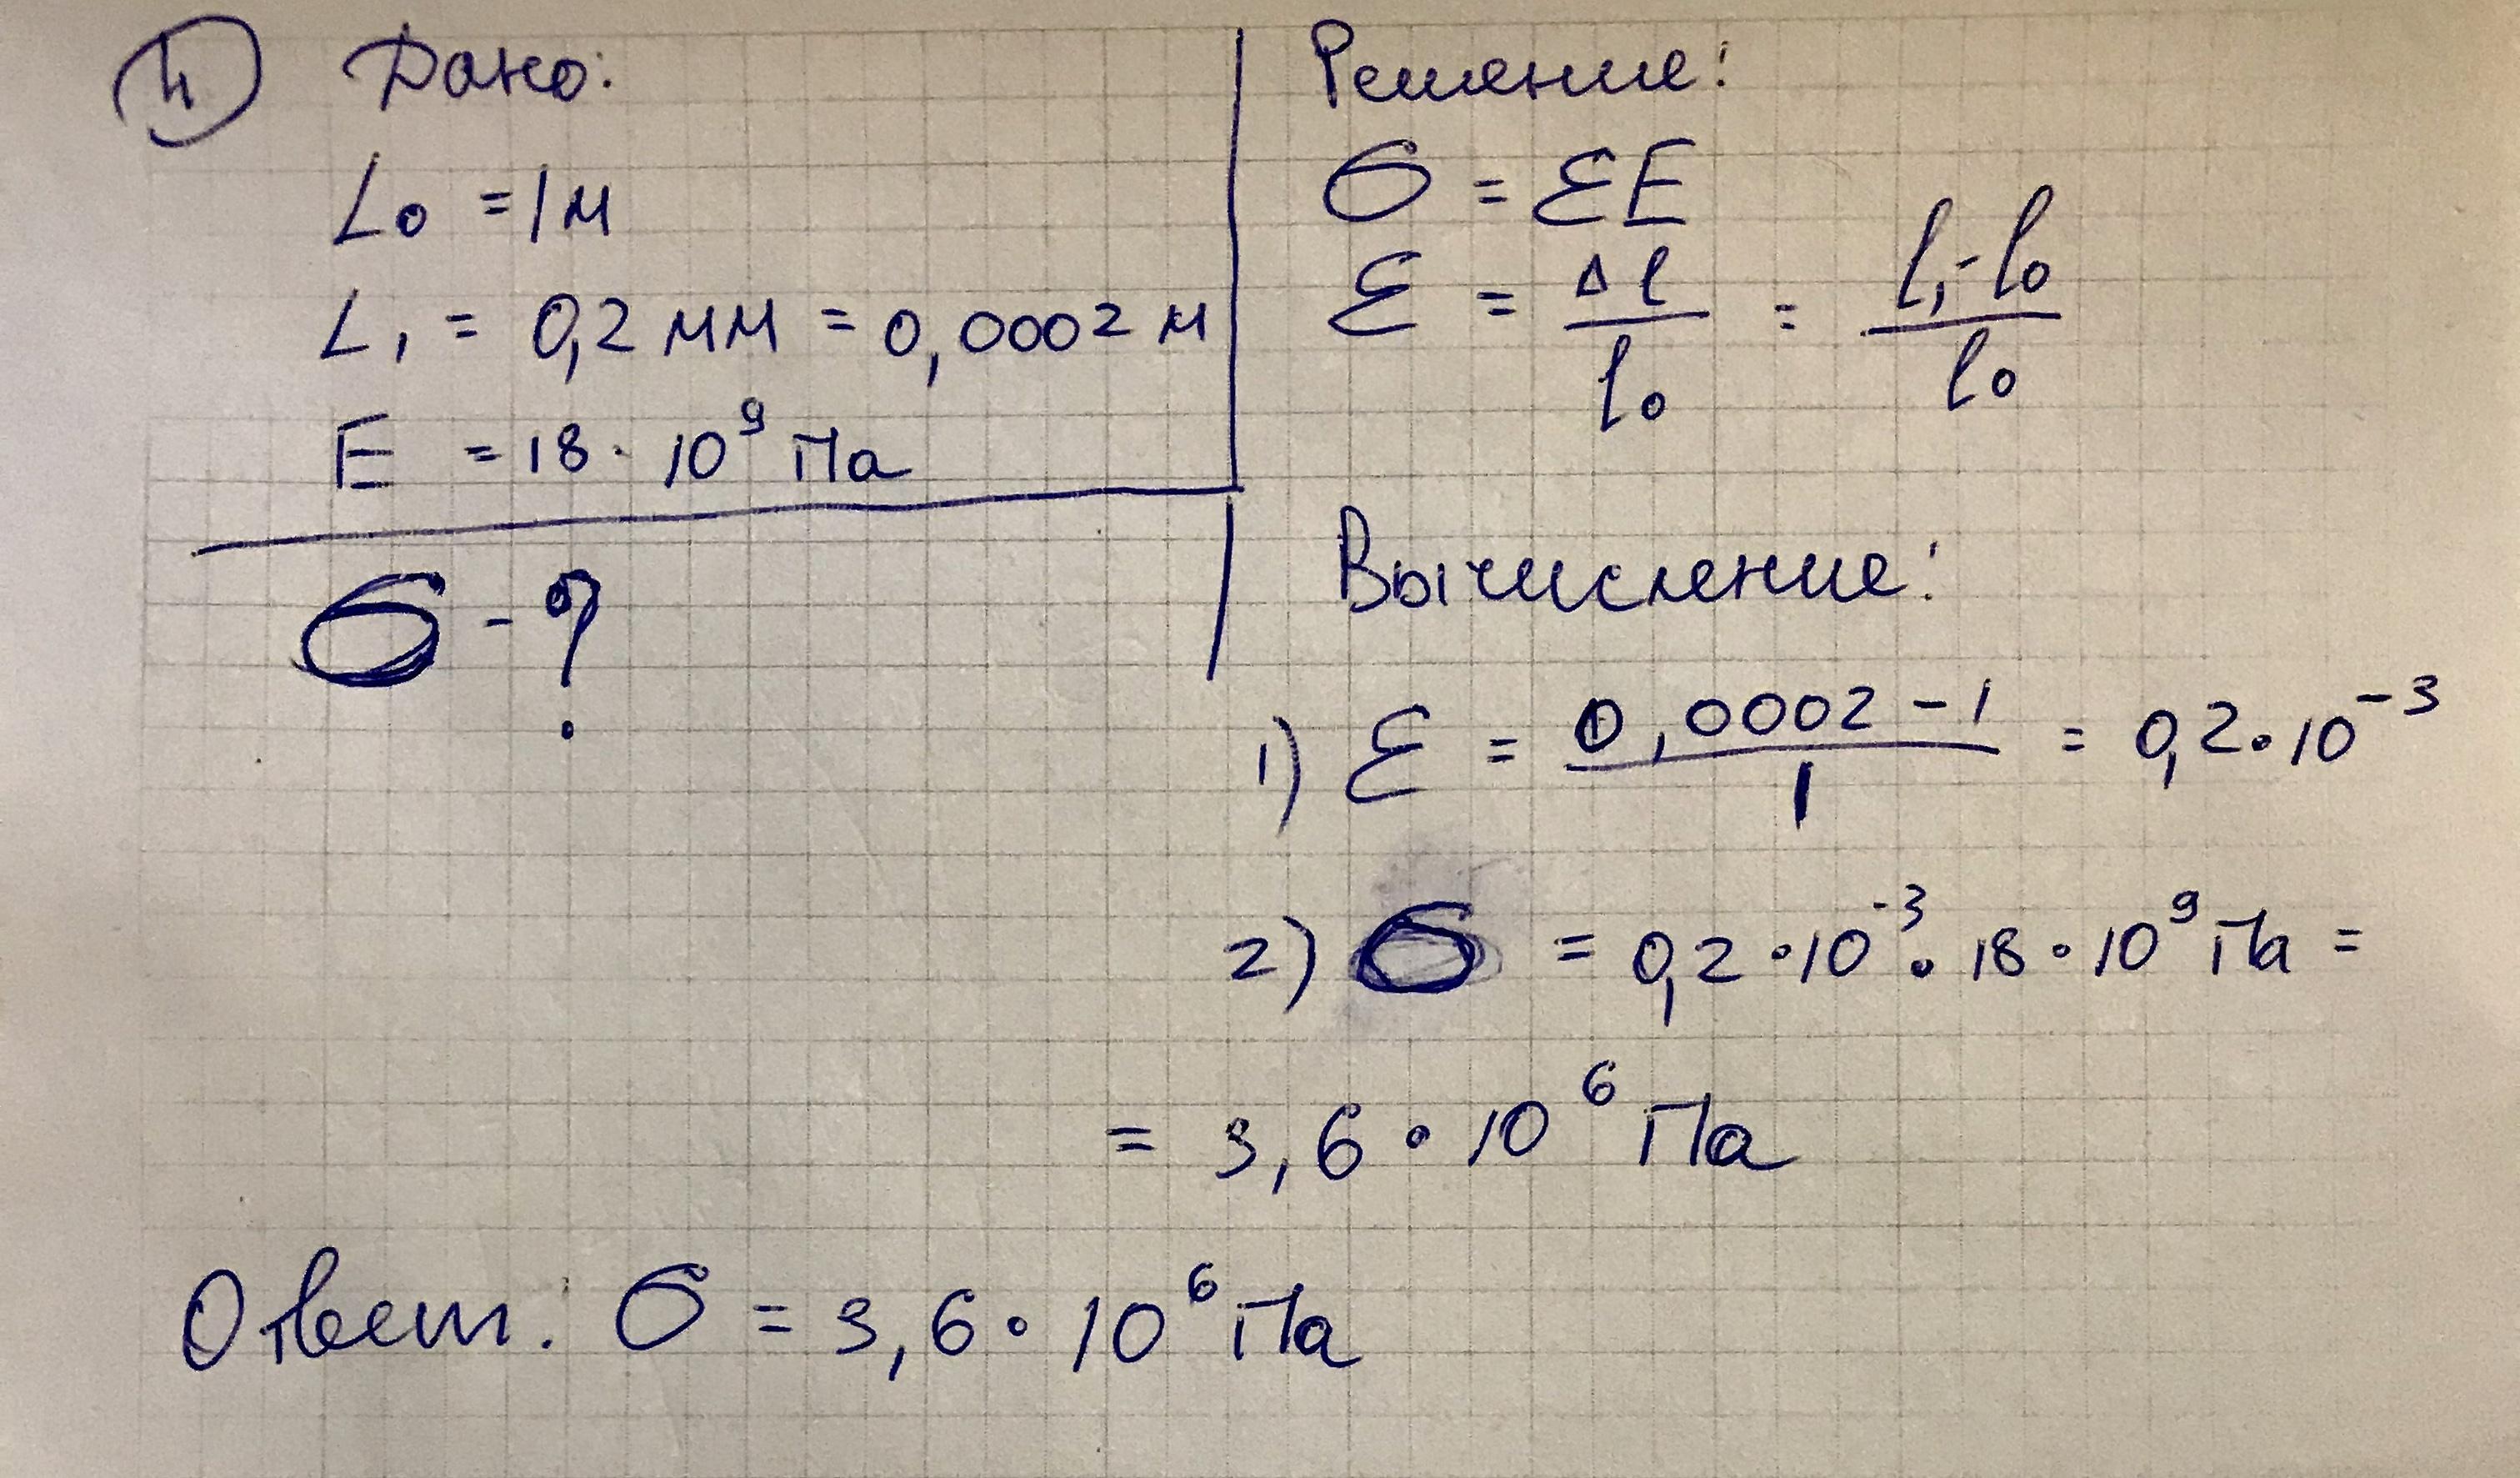 4 Дано:
L₀ = 1 м
L₁ = 0,2 мм = 0,0002 м
E = 18 · 10⁹ Па
σ - ?
Решение:
σ = εE
ε = Δl / l₀ = l₁ - l₀ / l₀
Вычисление:
1) ε = 0,0002 - 1 / 1 = 0,2 · 10⁻³
2) σ = 0,2 · 10⁻³ · 18 · 10⁹ Па =
= 3,6 · 10⁶ Па
Ответ: σ = 3,6 · 10⁶ Па